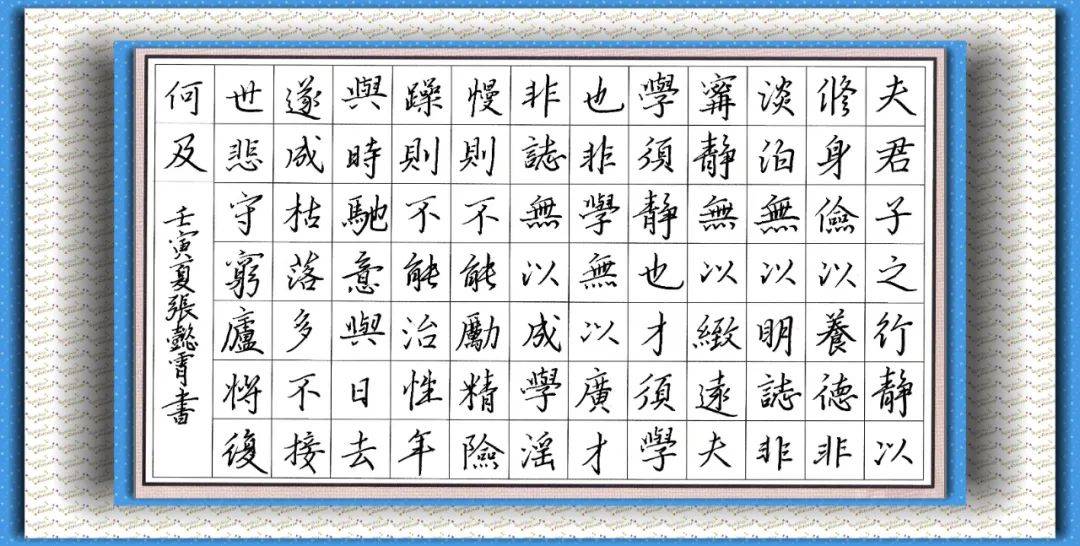 夫君子之行靜以
修身儉以養德非
淡泊無以明誌非
寧靜無以緻遠夫
學須靜也才須學
也非學無以廣才
非誌無以成學淫
慢則不能勵精險
躁則不能治性年
與時馳意與日去
遂成枯落多不接
世悲守窮廬將復
何及
壬寅夏張懿霄書